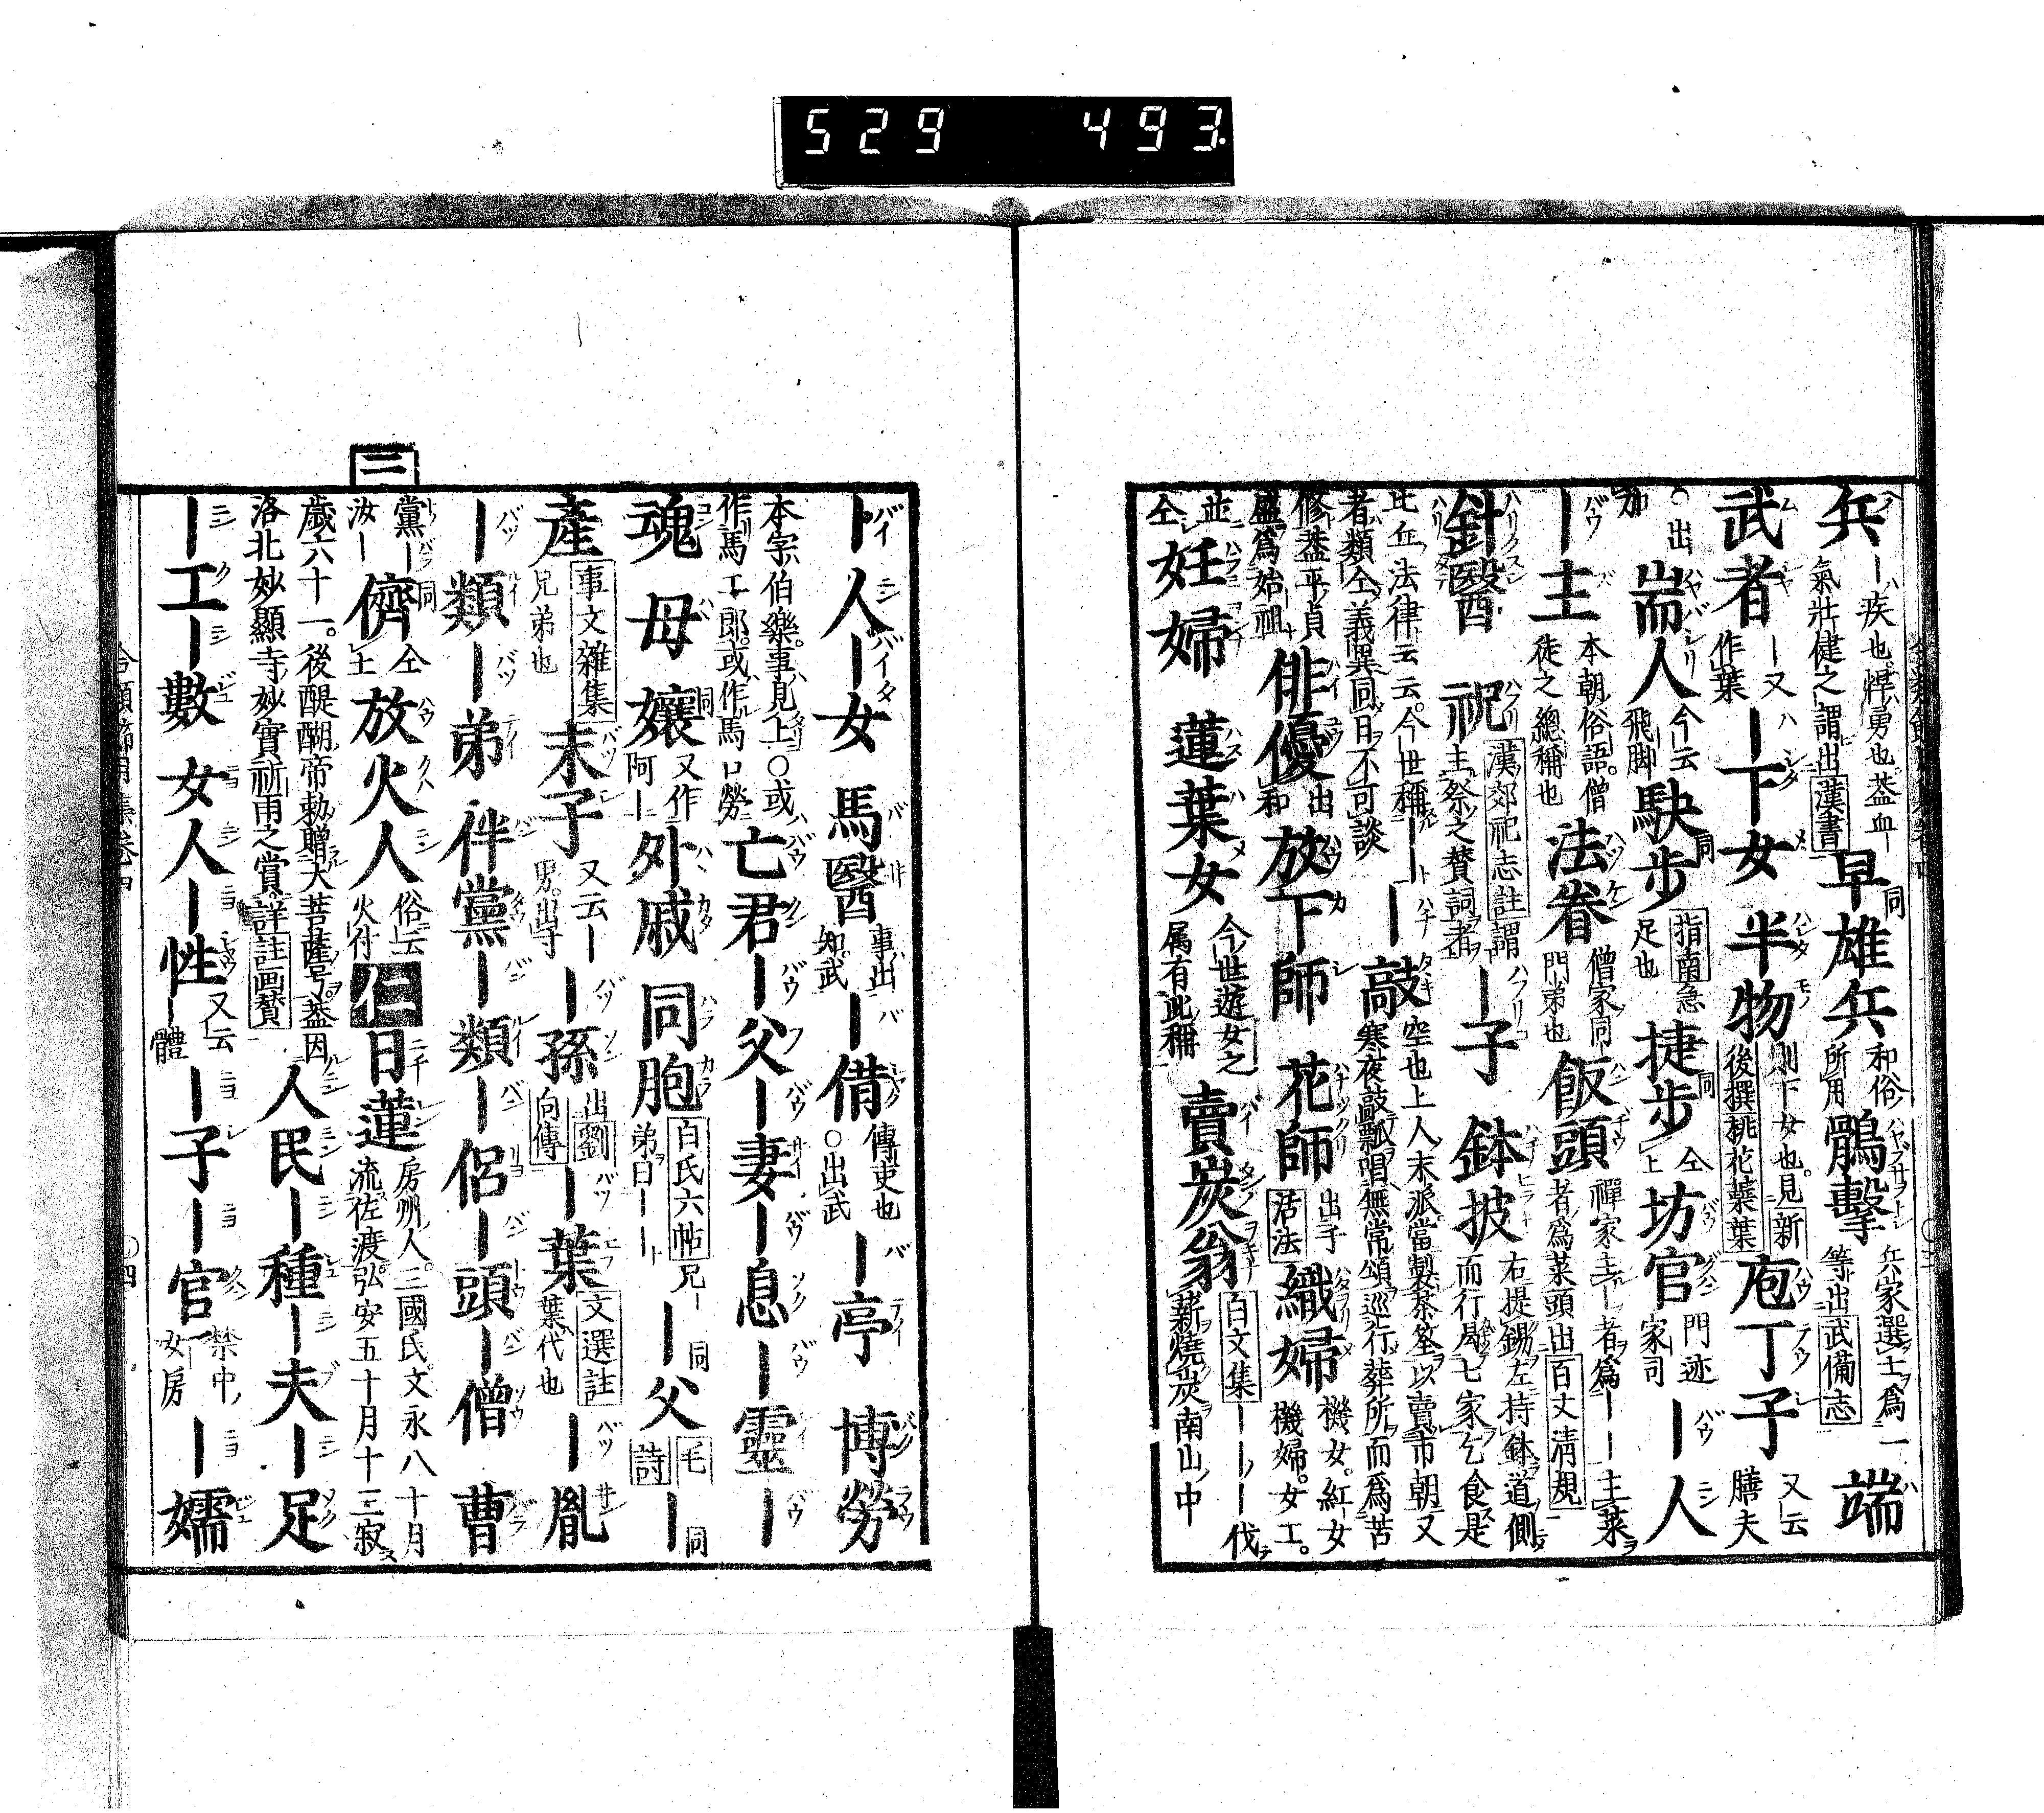 529 493
兵 ー疾也。悍勇也。蓋血ー氣壯健之謂出漢書 早雄 同 兵 和俗所用 鶻擊 兵家選士為一等出武備志 端
武者 ー又作葉 ー下女 半物 則下女也。見新後撰桃花蘂葉 庖丁子 又云膳夫
○出 耑人 今云飛脚 駃步 同 指南急足也 捷步 同 仝上 坊官 門迹家司 ー人
ー主 本朝俗語。僧徒之總稱也 法眷 僧家同門弟也 飯頭 禪家主ー者為ーー主菜者為菜頭出百丈淸規
針醫 祝 漢郊祀志註謂主祭之賛詞者 ー子 鉢披 右提錫左持鉢道側而行局七家乞食是
比丘法律云云。今世稱ーー者類仝義異同日不可談 ー敲 空也上人末派當製茶筌以賣市朝又寒夜鼓瓢唱無常頌巡行葬所而為苦
修蓋平貞盛為始祖 俳優 出和 放下師 花師 出于活法 織婦 機女。紅女機婦。女工。
並仝 妊婦 蓮葉女 今世遊女之属有此稱 賣炭翁 白文集ーーー伐薪燒炭南山中
ー人 ー女 馬醫 事出知武 ー借 傳吏也○出武 ー亭 博勞
本字伯樂。事見上○或作馬工郎。或作馬口勞 亡君 ー父 ー妻 ー息 ー靈 ー
魂 母 孃 同 又作阿ー 外戚 同胞 白氏六帖兄ー弟曰ーー ー父 同 毛詩 ー 同
產 事文雜集兄弟也 末子 又云ー男。出于 ー孫 出劉向傳 ー葉 文選註葉代也 ー胤
ー類 ー弟 伴黨 ー類 ー侶 ー頭 ー僧 曹
三
黨ー同汝ー 儕 仝上 放火人 俗云火付 仁 日蓮 房州人。三國氏文永八十月流佐渡。弘安五十月十三寂
歲六十一。後醍醐帝勅贈大菩薩号。蓋因洛北妙顯寺妙實祈雨之賞。詳註画賛 人民 ー種 ー夫 ー足
ー工 ー數 女人 ー性 又云ー體 ー子 ー官 禁中女房 ー嬬